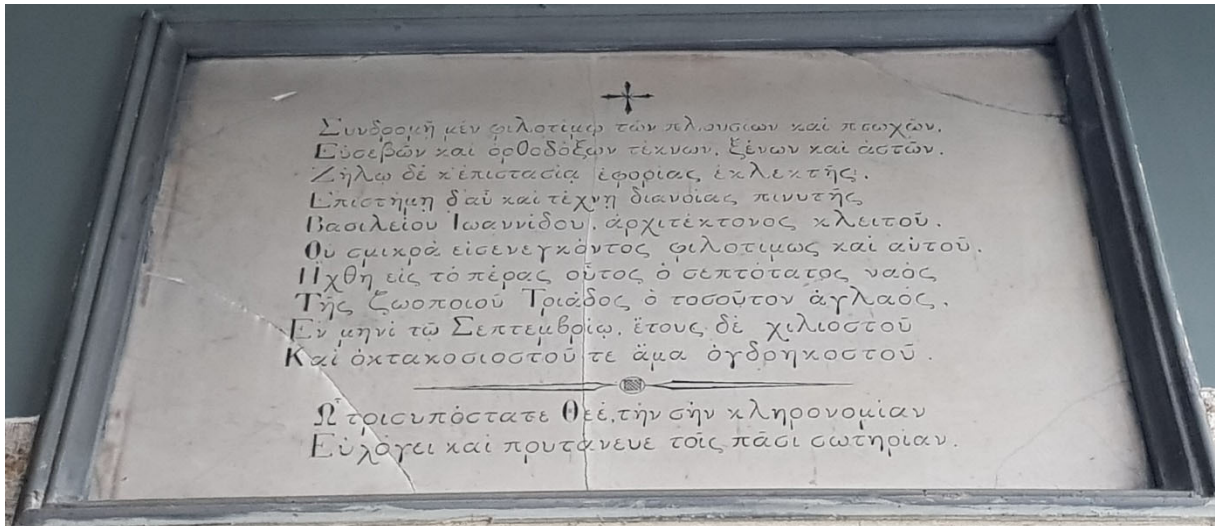 Συνδρομῇ μὲν φιλοτίμῳ τῶν πλουσίων καὶ πτωχῶν,
Εὐσεβῶν καὶ ὀρθοδόξων τέκνων, ξένων καὶ ἀστῶν.
Ζήλῳ δὲ κ' ἐπιστασίᾳ ἐφορίας ἐκλεκτῆς,
Ἐπιστήμῃ δ' αὖ καὶ τέχνῃ διανοίας πινυτῆς
Βασιλείου Ἰωαννίδου, ἀρχιτέκτονος κλειτοῦ,
Οὐ σμικρὰ εἰσενεγκόντος φιλοτίμως καὶ αὐτοῦ,
Ἤχθη εἰς τὸ πέρας οὗτος ὁ σεπτότατος ναὸς
Τῆς ζωοποιοῦ Τριάδος ὁ τοσοῦτον ἀγλαός,
Ἐν μηνὶ τῷ Σεπτεμβρίῳ, ἔτους δὲ χιλιοστοῦ
Καὶ ὀκτακοσιοστοῦ τε ἅμα ὀγδοηκοστοῦ.
Ὦ τρισυπόστατε Θεέ, τὴν σὴν κληρονομίαν
Εὐλόγει καὶ πρυτάνευε τοῖς πᾶσι σωτηρίαν.